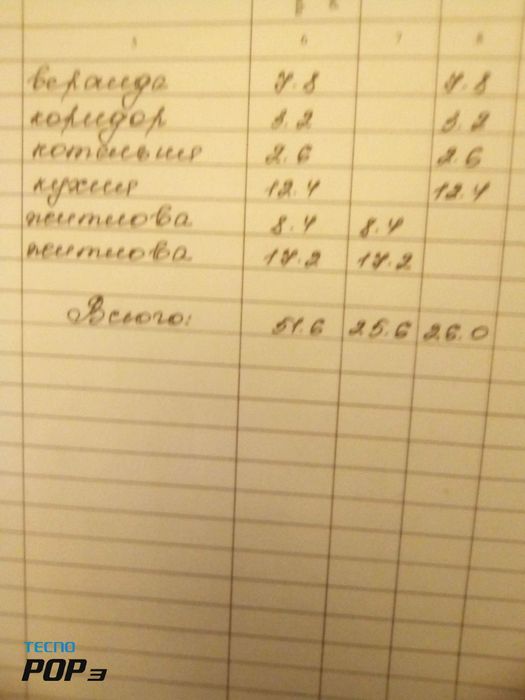 5 6 7 8
веранда 7.8 7.8
коридор 3.2 3.2
котельня 2.6 2.6
кухня 12.4 12.4
житлова 8.4 8.4
житлова 17.2 17.2
Всього: 51.6 25.6 26.0
TECNO
POP 3